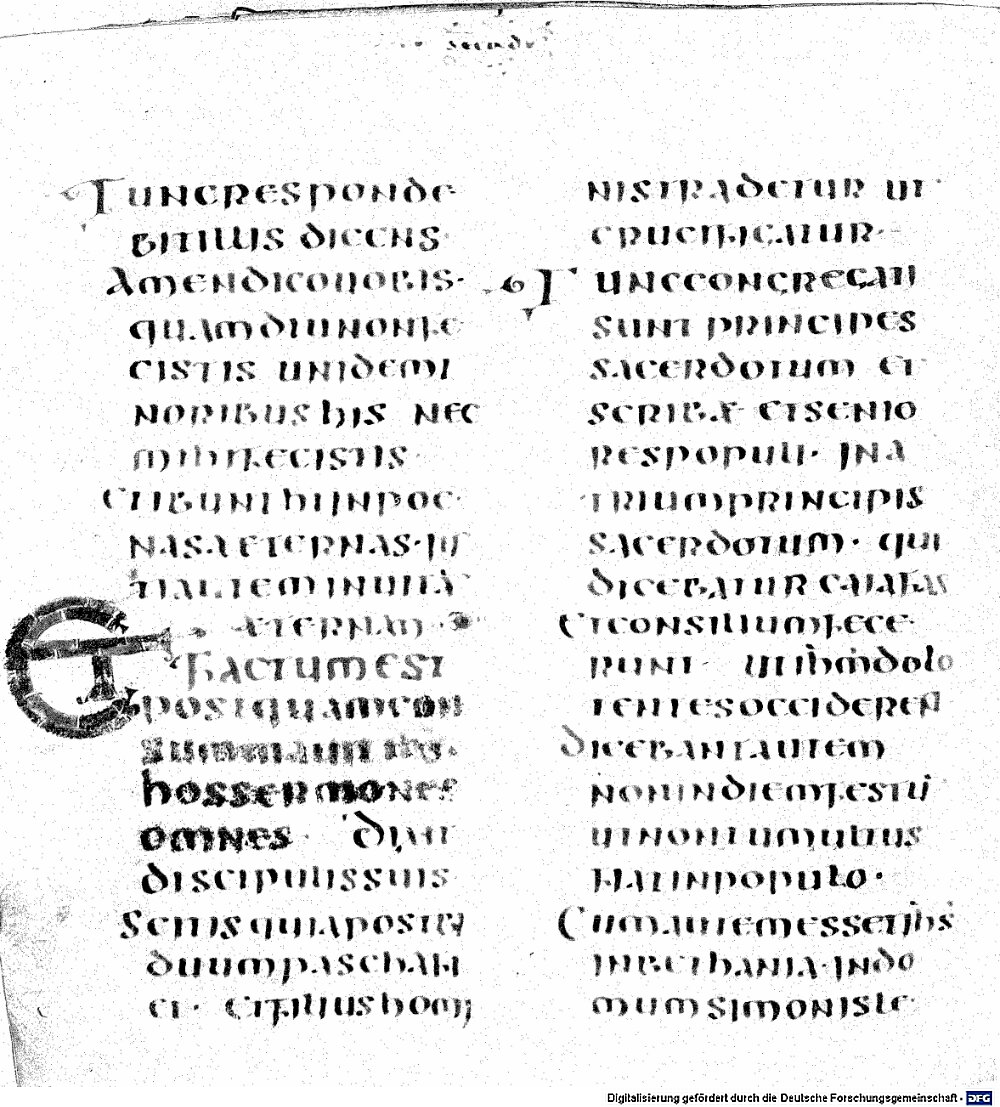 secund
Tunc responde
bit illis dicens·
Amen dico uobis·
quamdiu non fe
cistis uni de mi
noribus his nec
mihi fecistis·
Et ibunt hi in poe
nas aeternas· ius
ti autem in uita
aeternam·
Et factum est
postquam con
summauit ihs·
hos sermones
omnes· dixit
discipulis suis
Scitis quia post bi
duum pascha fi
et· et filius homi
nis tradetur ut
crucificatur·
Tunc congregati
sunt principes
sacerdotum et
scribae et senio
res populi· in a
trium principis
sacerdotum· qui
dicebatur caiafas
Et consilium fece
runt· ut ihm dolo
tentes occiderent
dicebant autem
non in die festo
ut non tumultus
fiat in populo·
Cum autem esset ihs
in bethania· in do
mum simonis le
Digitalisierung gefördert durch die Deutsche Forschungsgemeinschaft - DFG